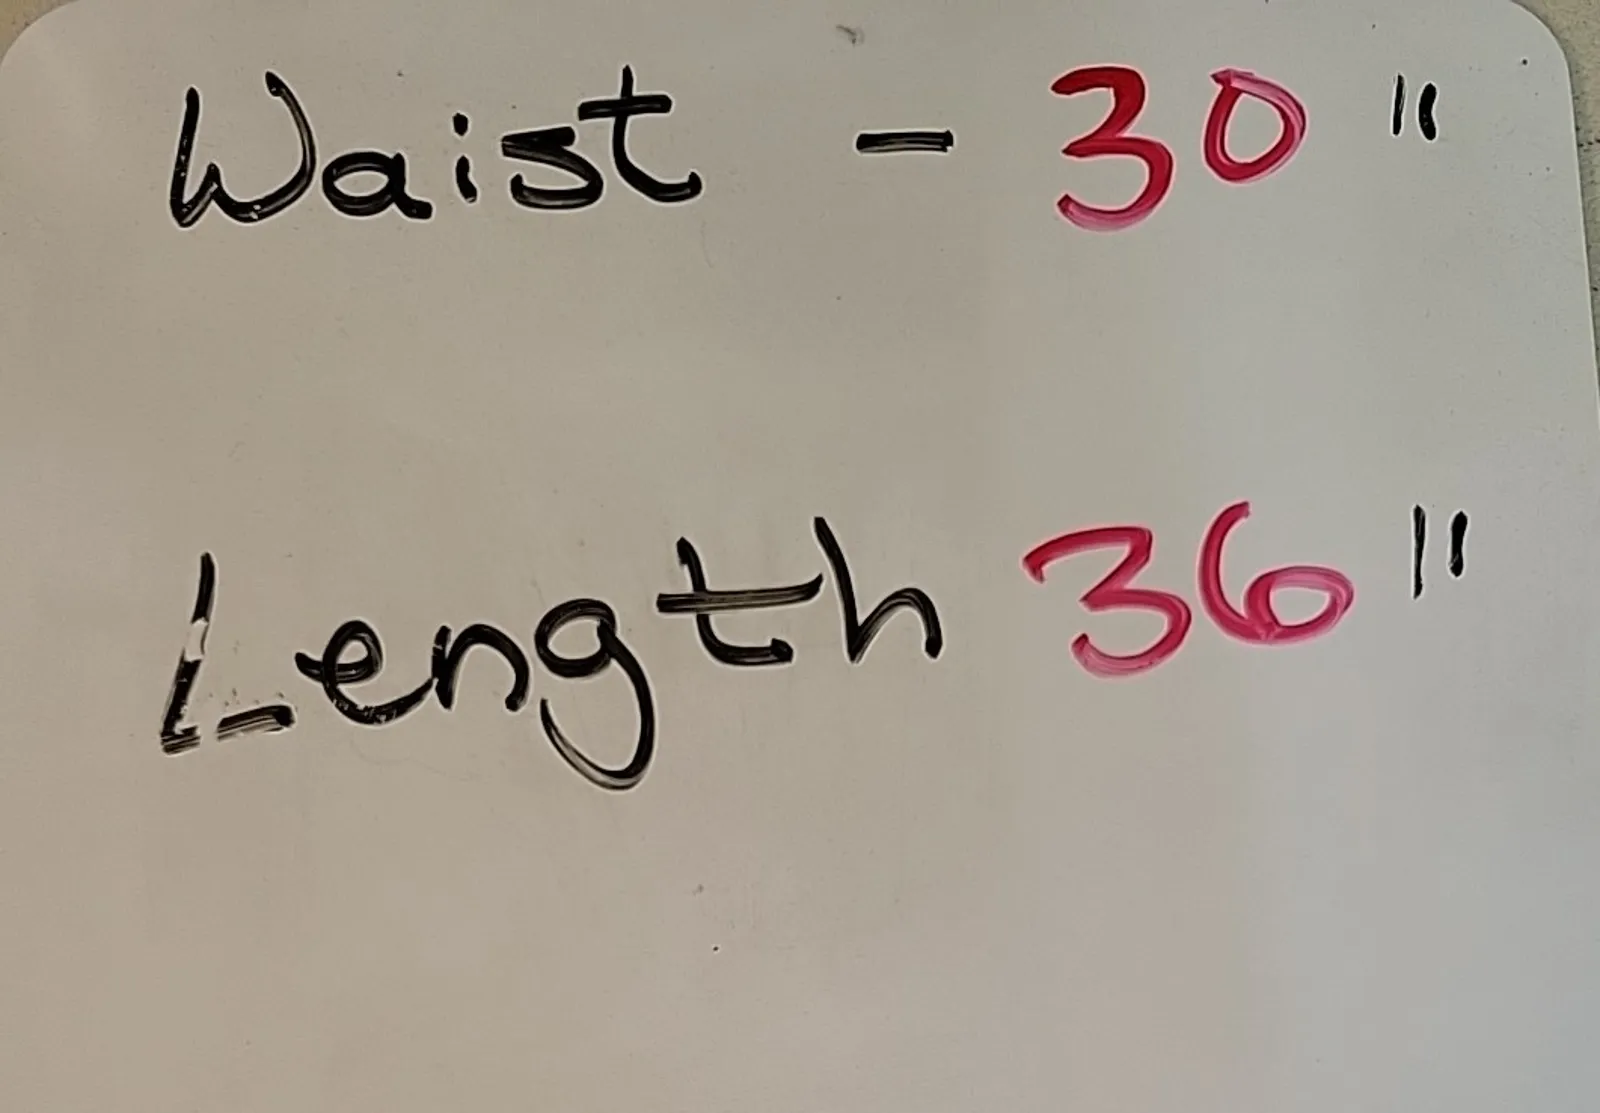 Waist - 30"
Length 36"